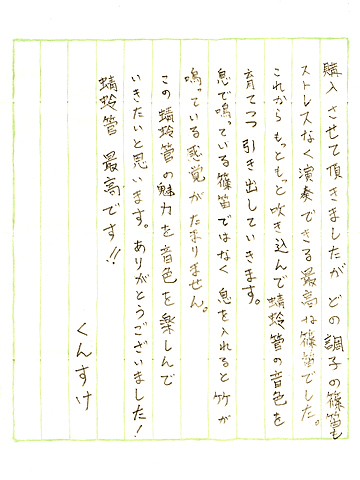 購入させて頂きましたがどの調子の篠笛も
ストレスなく演奏できる最高な篠笛でした。
これからもっともっと吹き込んで蜻蛉管の音色を
育てつつ引き出していきます。
息で鳴っている篠笛ではなく息を入れると竹が
鳴っている感覚がたまりません。
この蜻蛉管の魅力を音色を楽しんで
いきたいと思います。ありがとうございました!
蜻蛉管 最高です!!
くんすけ